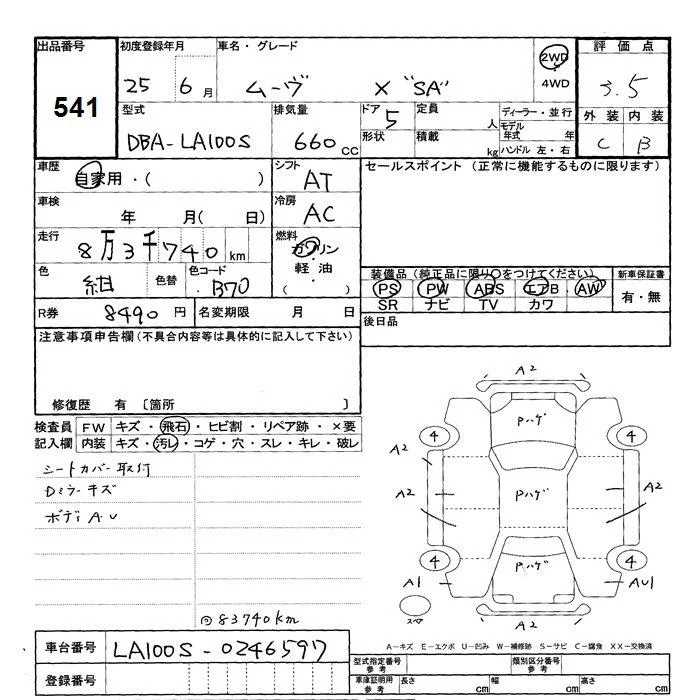 出品番号 初度登録年月 車名・グレード 2WD 4WD 評価点
541 25 6月 ムーヴ X "SA" 3.5
型式 排気量 ドア 定員 人 ディーラー・並行 外装 内装
DBA-LA100S 660cc 5 形状 積載 kg モデル年式 年 ハンドル 左・右 C B
車歴 自家用・( ) シフト AT セールスポイント (正常に機能するものに限ります)
車検 年 月( 日) 冷房 AC
走行 8万3千740km 燃料 ガソリン・軽油・( )
色 紺 色替 色コード B70 装備品 (純正品に限り○をつけてください) 新車保証書
PS PW ABS エアB AW 有・無
SR ナビ TV カワ
R券 8490円 名変期限 月 日 後日品
注意事項申告欄 (不具合内容等は具体的に記入して下さい)
修復歴 有 〔箇所 〕
検査員 FW キズ・飛石・ヒビ割・リペア跡・×要
記入欄 内装 キズ・汚レ・コゲ・穴・スレ・キレ・破レ
シートカバー取付
Dミラーキズ
ボディA.U
◎83740km
A2
Pハゲ
4 4
A2
A2 Pハゲ A2
4 Pハゲ 4
A1 AU1
スペア A2
A-キズ E-エクボ U-凹み W-補修跡 S-サビ C-腐食 XX-交換済
車台番号 LA100S-0246597
登録番号
型式指定番号 参考 類別区分番号 参考
車庫証明用 参考 長さ cm 幅 cm 高さ cm